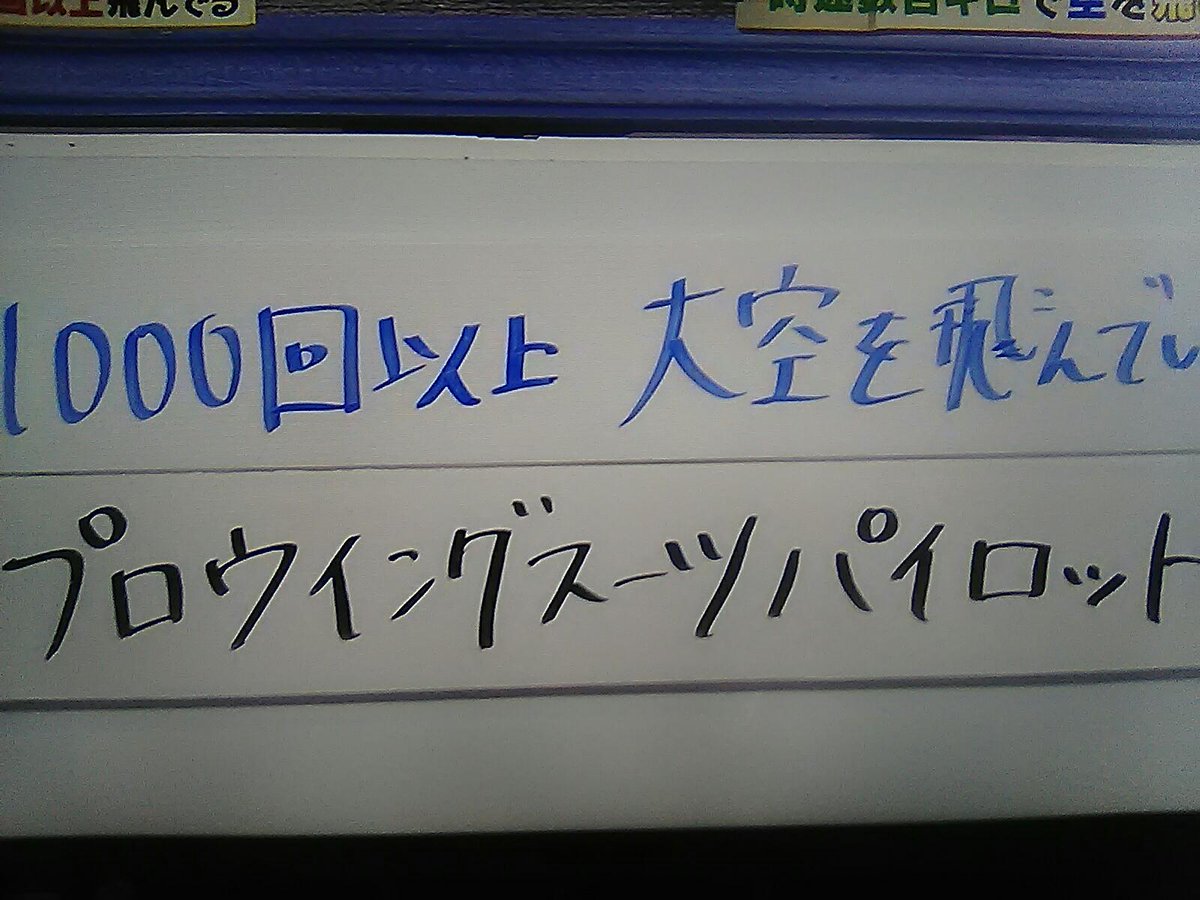 以上飛んでる
時速数百キロで空を飛
1000回以上 大空を飛んでい
プロウイングスーツパイロット